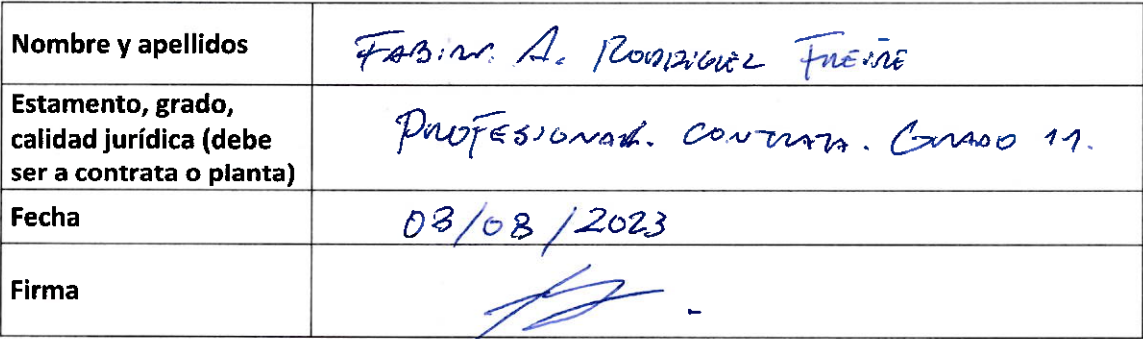 Nombre y apellidos
FABIAN A. RODRIGUEZ FREIRE
Estamento, grado,
calidad jurídica (debe
ser a contrata o planta)
PROFESIONAL. CONTRATA. GRADO 11.
Fecha
03/08/2023
Firma